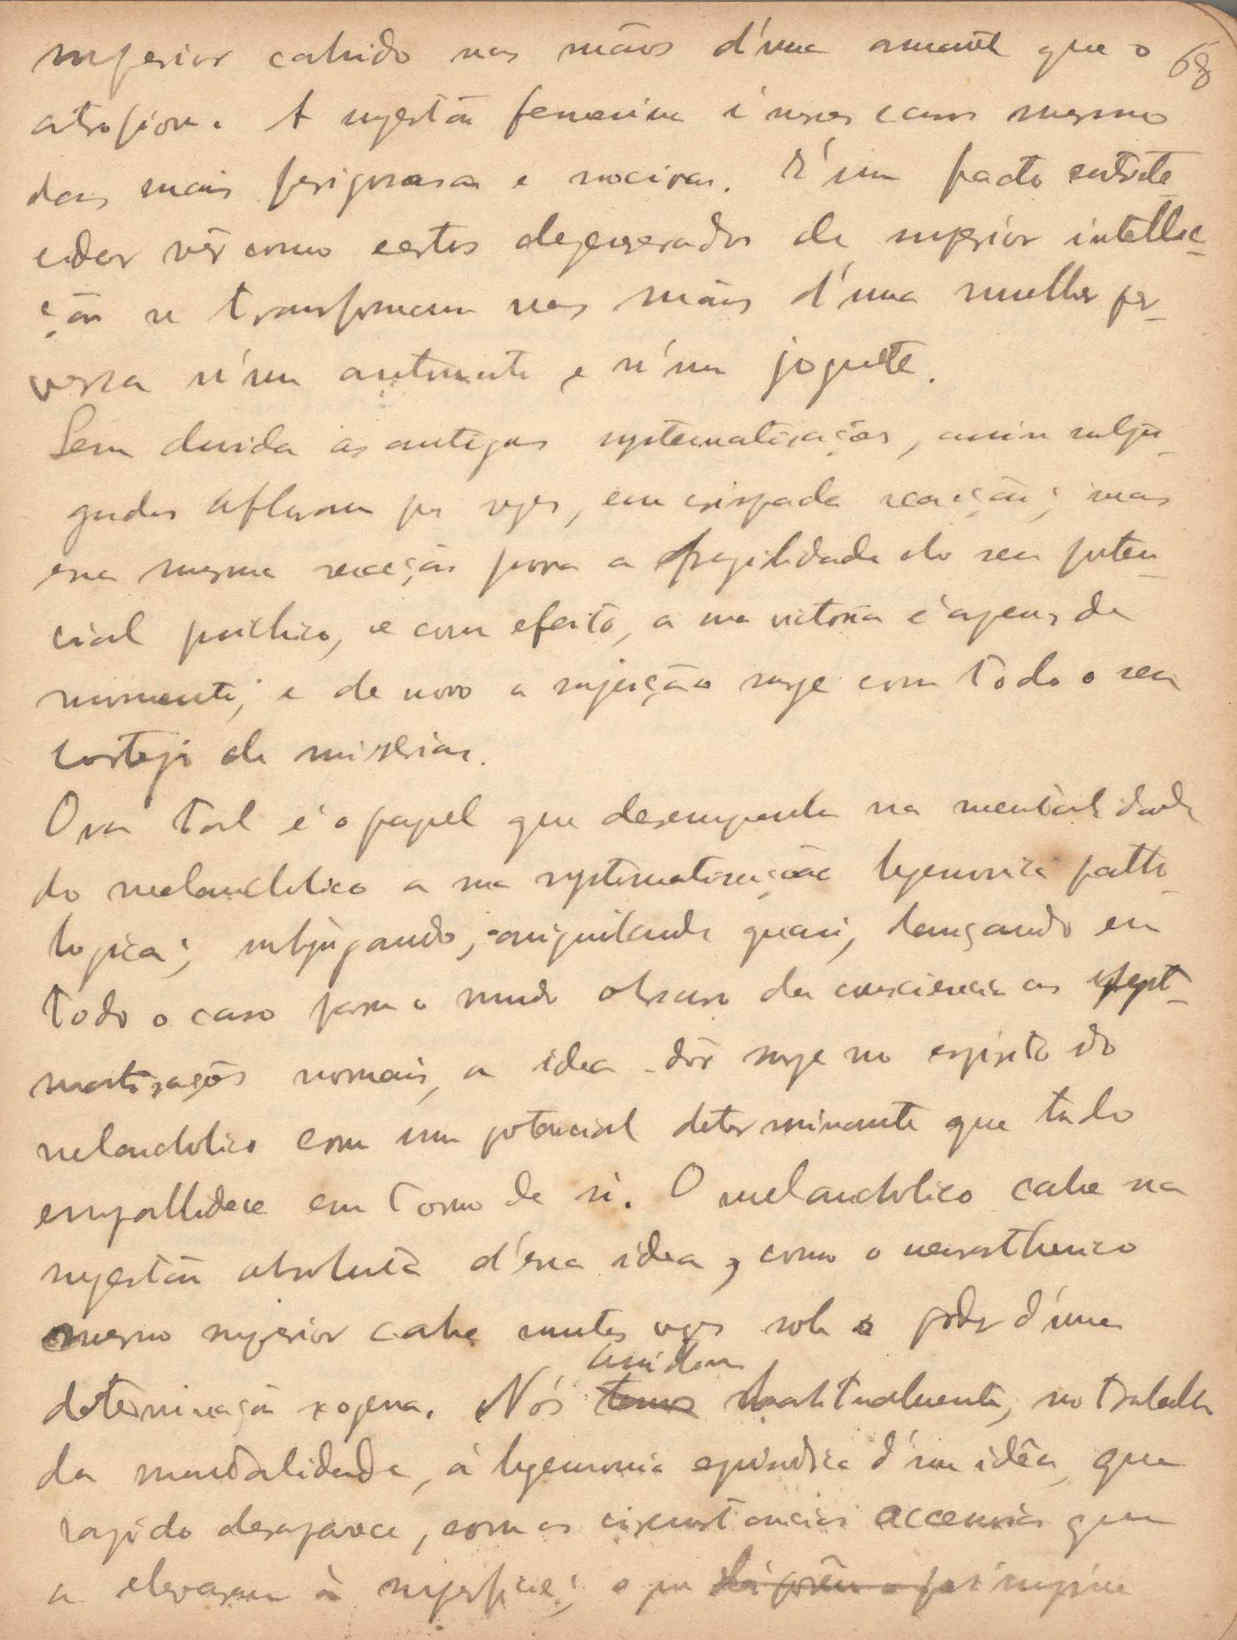 superior cahido nas mãos d'uma amante que o 68
atrofiou. A sugestão feminina é n'esses casos mesmo
das mais perigosas e nocivas. É um facto entriste
cedor vêr como certos degenerados de superior intellec-
ção se transformam nas mãos d'uma mulher per-
versa n'um automato e n'um joguete.
Sem duvida as antigas systematisações, assim subju-
gadas afloram por vezes, em crispada reacção; mas
essa mesma reacção prova a fragilidade do seu poten-
cial psichico, e com efeito, a sua victoria é apenas de
momento; e de novo a sujeição surge com todo o seu
cortejo de miserias.
Ora tal é o papel que desempenha na mentalidade
do melancholico a sua systematisação hegemonica patho-
logica; subjugando, aniquilando quasi, lançando em
todo o caso para o mundo obscuro da consciencia as syst-
matisações normais, a idea-dôr surge no espirito do
melancholico com um potencial determinante que tudo
empallidece em torno de si. O melancholico cahe na
sugestão absoluta d'essa idea, como o neurasthenico
mesmo superior cahe muitas vezes sob o poder d'uma
determinação exogena. Nós habitualmente, no trabalho
da mentalidade, á hegemonia episodica d'uma idêa, que
rapido desaparece, com as circunstancias accessorias que
a elevaram á superficie; o que